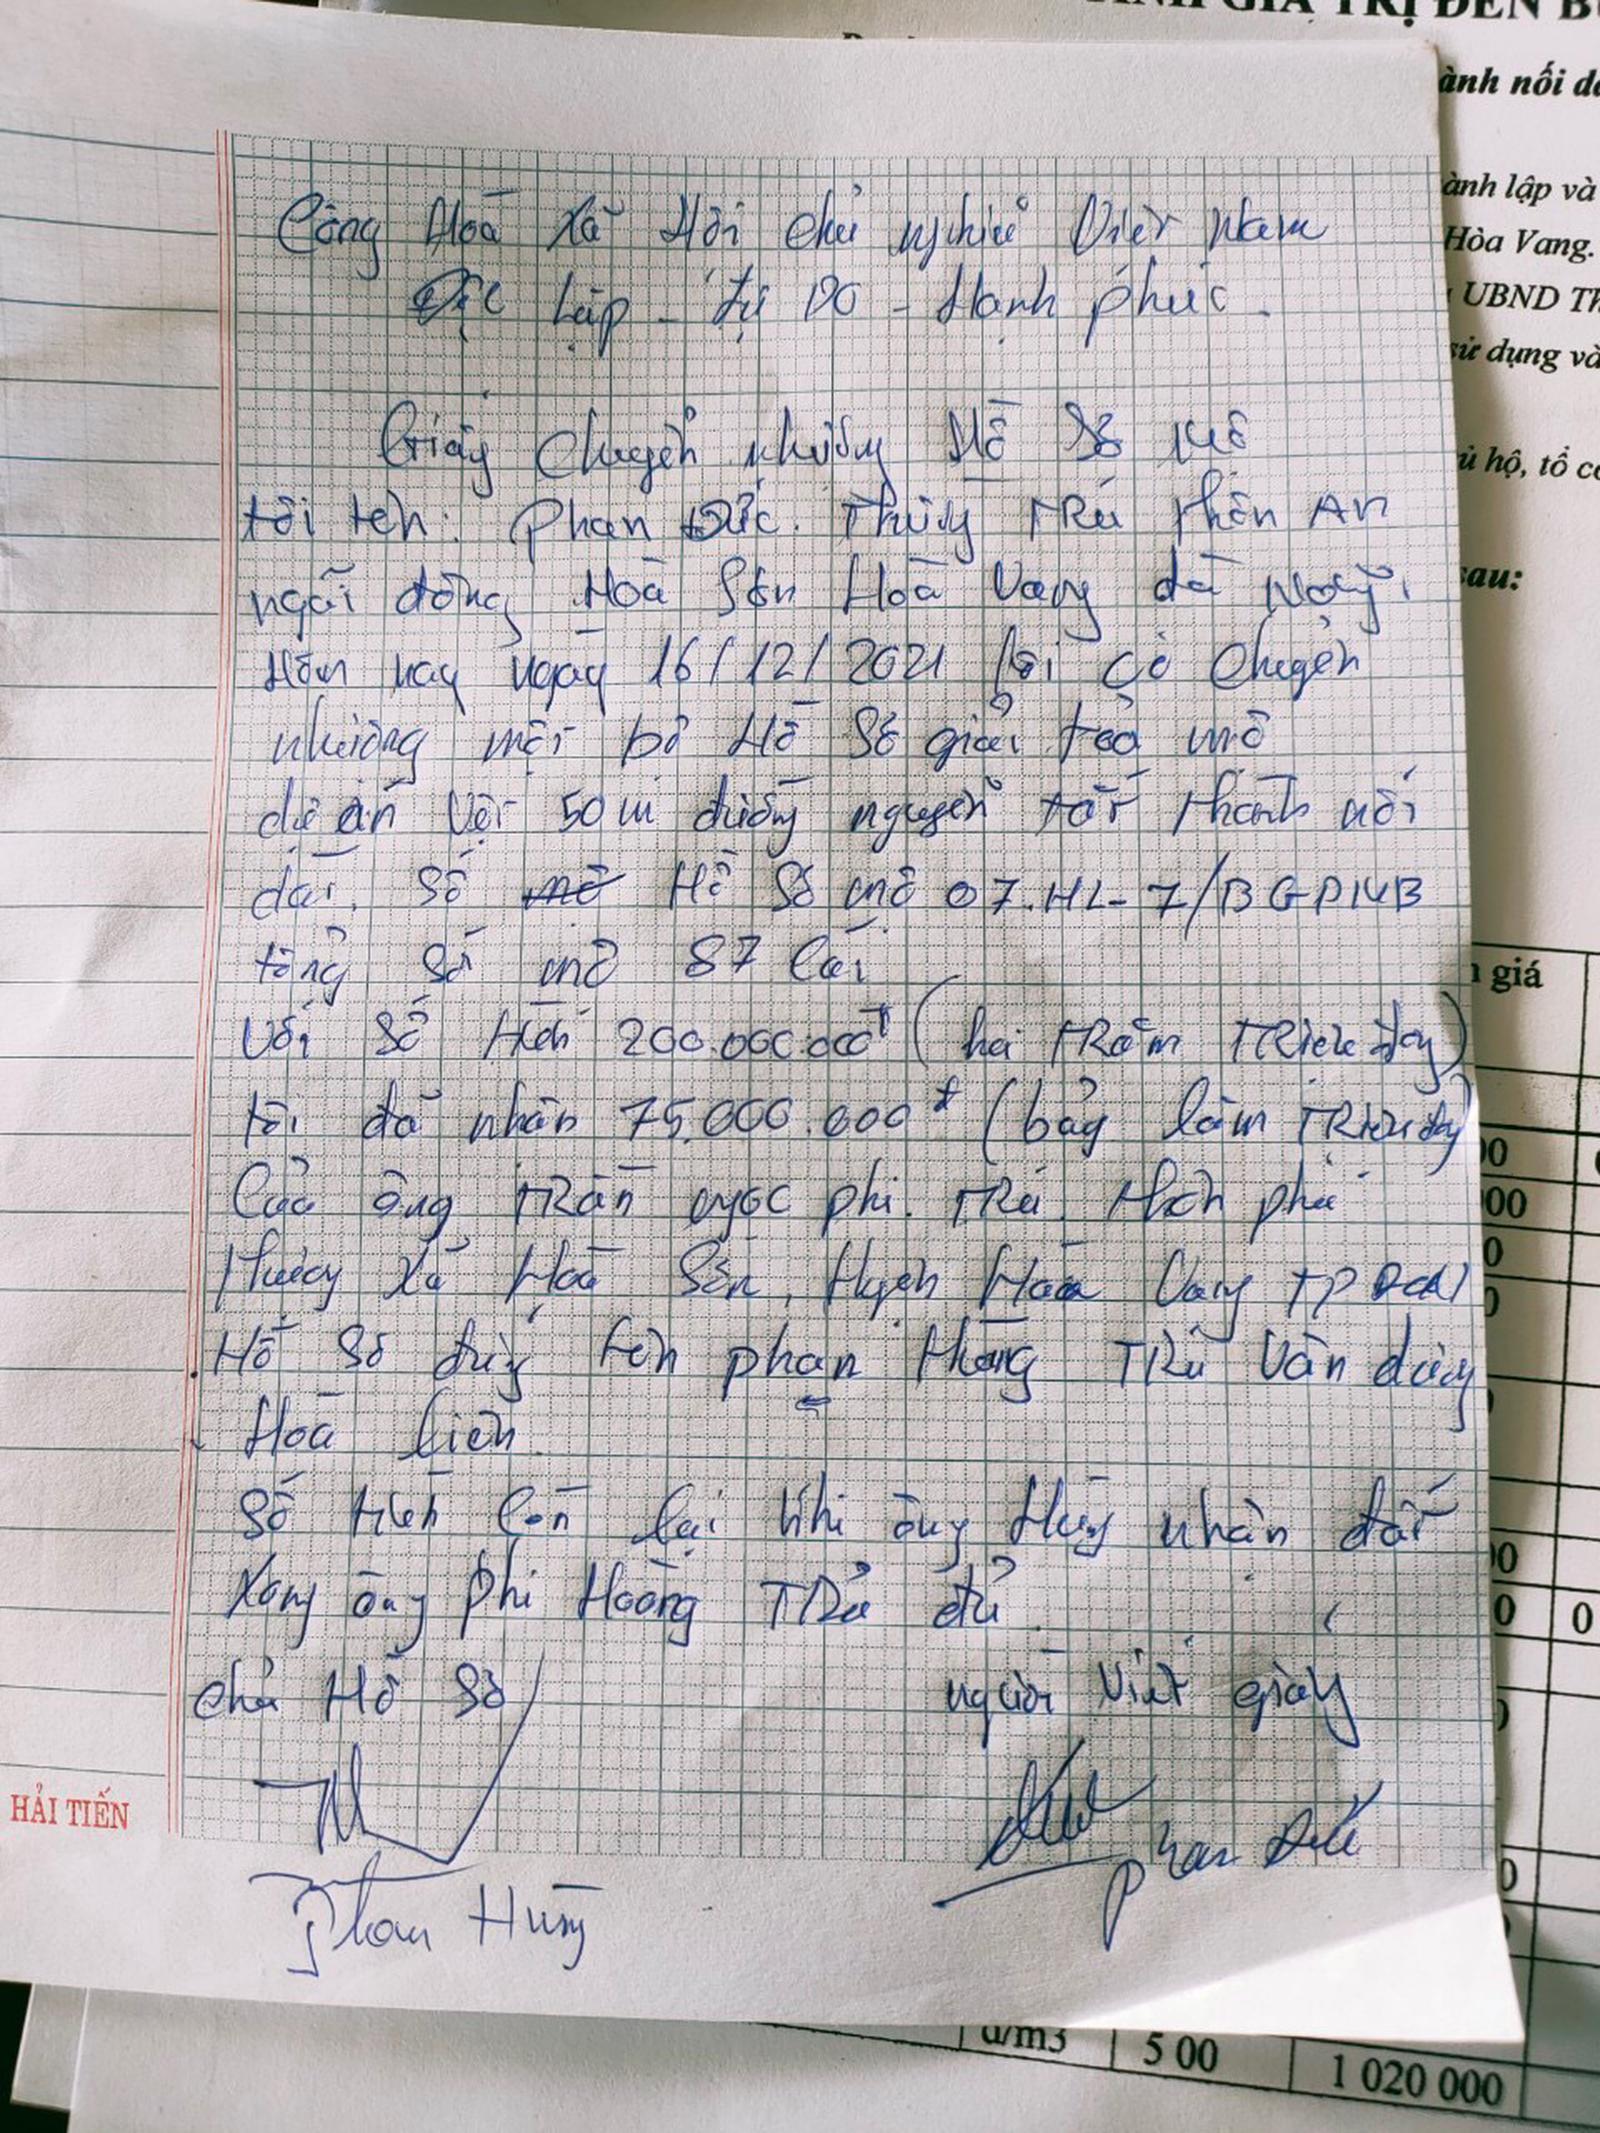 ÁNH GIÁ TRỊ ĐỀN B
ành nối d
ành lập và
Hòa Vang.
UBND Th
sử dụng và
ủ hộ, tổ c
sau:
n giá
Cộng Hoà Xã Hội chủ nghiã Việt Nam
Độc Lập - Tự Do - Hạnh phúc.
Giấy chuyển nhường Hồ Sơ mồ
tôi tên: Phan Đức. Thùy TRú thôn AN
ngãi đông Hoà Sơn Hoà Vang đà Nẵng.
Hôm nay ngày 16/12/2021 tôi có chuyển
nhường một bộ Hồ Sơ giải toả mồ
dự án Vệt 50m đường nguyễn tất thành nối
dài. Số mồ Hồ Sơ mồ 07.HL-7/BGPMB
tổng số mồ 87 Cái
Với số tiền 200.000.000đ (hai trăm TRiệu đồng)
tôi đã nhận 75.000.000đ (bảy lăm TRiệu đồng)
Của ông TRần ngọc phi. TRú. thôn phú
Thượng Xã Hoà Sơn, Huyện Hoà Vang TP ĐN
Hồ Sơ đứng tên phan Hùng TRú Vân dương
Hoà Liên.
Số tiền Còn lại khi ông Hùng nhận đất
Xong ông phi Hoàng TRả đủ.
chủ Hồ Sơ
người Viết giấy
Phan Hùng
Phan Đức
HẢI TIẾN
00
000
0
00
0 0
đ/m3 5 00 1 020 000